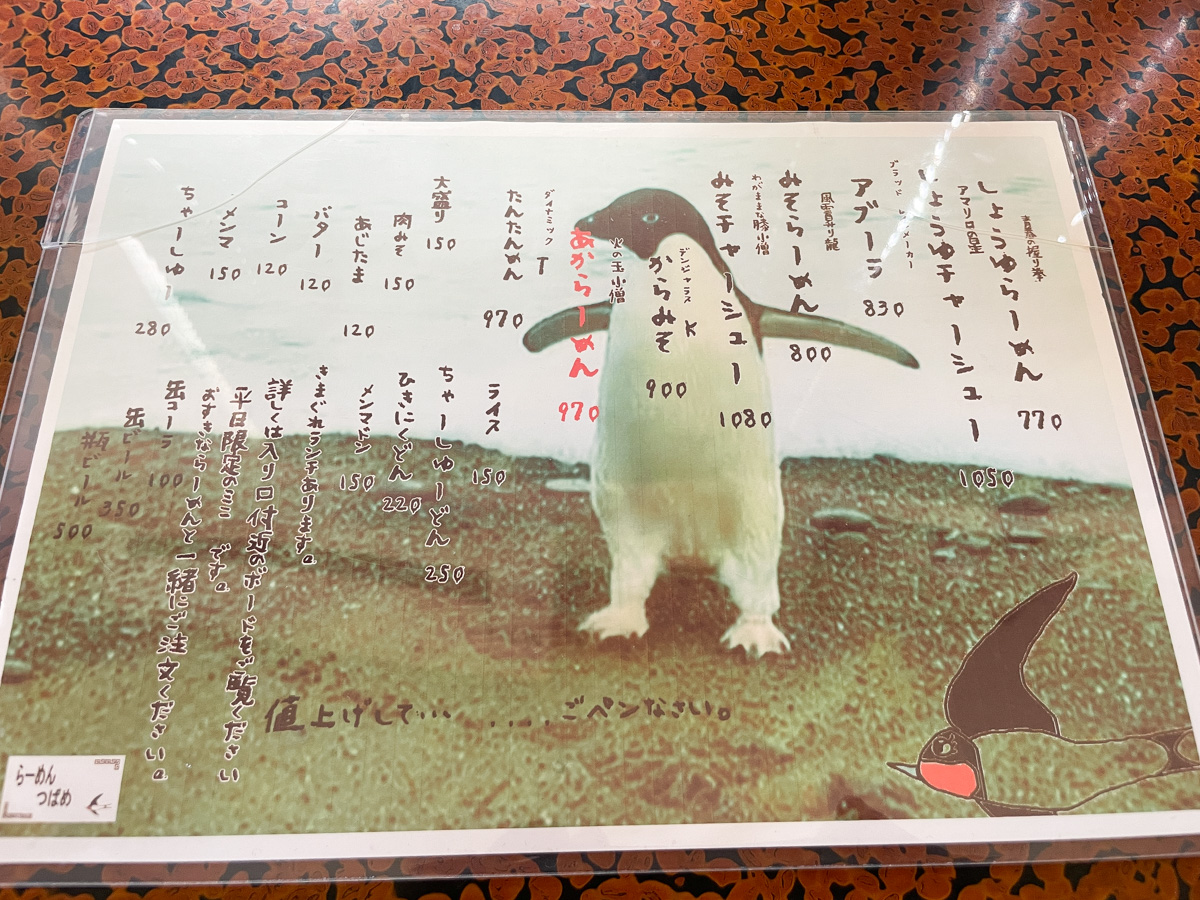 青春の握り拳
しょうゆらーめん 770
アマリロの星
しょうゆチャーシュー 1050
アブーラ 830
風雲昇り龍
みそらーめん 800
わがままな膝小僧
みそチャーシュー 1080
デンジャラス K
からみそ 900
火の玉小僧
あからーめん 970
ダイナミック T
たんたんめん 970
大盛り 150
肉みそ 150
あじたま 120
バター 120
コーン 120
メンマ 150
ちゃーしゅー 280
ライス 150
ちゃーしゅーどん 250
ひきにくどん 220
メンマドン 150
きまぐれランチあります。
詳しくは入り口付近のボードをご覧ください
平日限定のミニ です。
おすきならーめんと一緒にご注文ください。
缶コーラ 100
缶ビール 350
瓶ビール 500
値上げして... ....ごペンなさい。
らーめん
つばめ